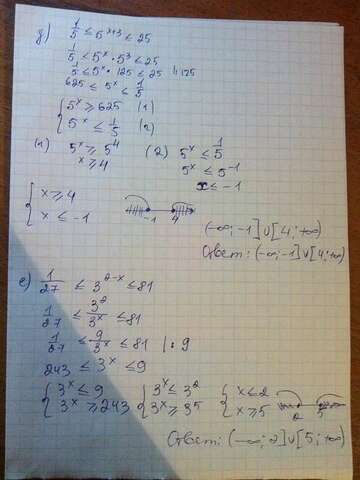 д) 1/5 ≤ 5^(x+3) ≤ 25
1/5 ≤ 5^x · 5^3 ≤ 25
1/5 ≤ 5^x · 125 ≤ 25 |:125
625 ≤ 5^x ≤ 1/5
{ 5^x ≥ 625 (1)
5^x ≤ 1/5 (2)
(1) 5^x ≥ 5^4 (2) 5^x ≤ 1/5
x ≥ 4 5^x ≤ 5^-1
x ≤ -1
{ x ≥ 4
x ≤ -1
-1 4
(-∞; -1] ∪ [4; +∞)
Ответ: (-∞; -1] ∪ [4; +∞)
е) 1/27 ≤ 3^(2-x) ≤ 81
1/27 ≤ 3^2/3^x ≤ 81
1/27 ≤ 9/3^x ≤ 81 |:9
243 ≤ 3^x ≤ 9
{ 3^x ≤ 9 { 3^x ≤ 3^2 { x ≤ 2
3^x ≥ 243 3^x ≥ 3^5 x ≥ 5 2 5
Ответ: (-∞; 2] ∪ [5; +∞)